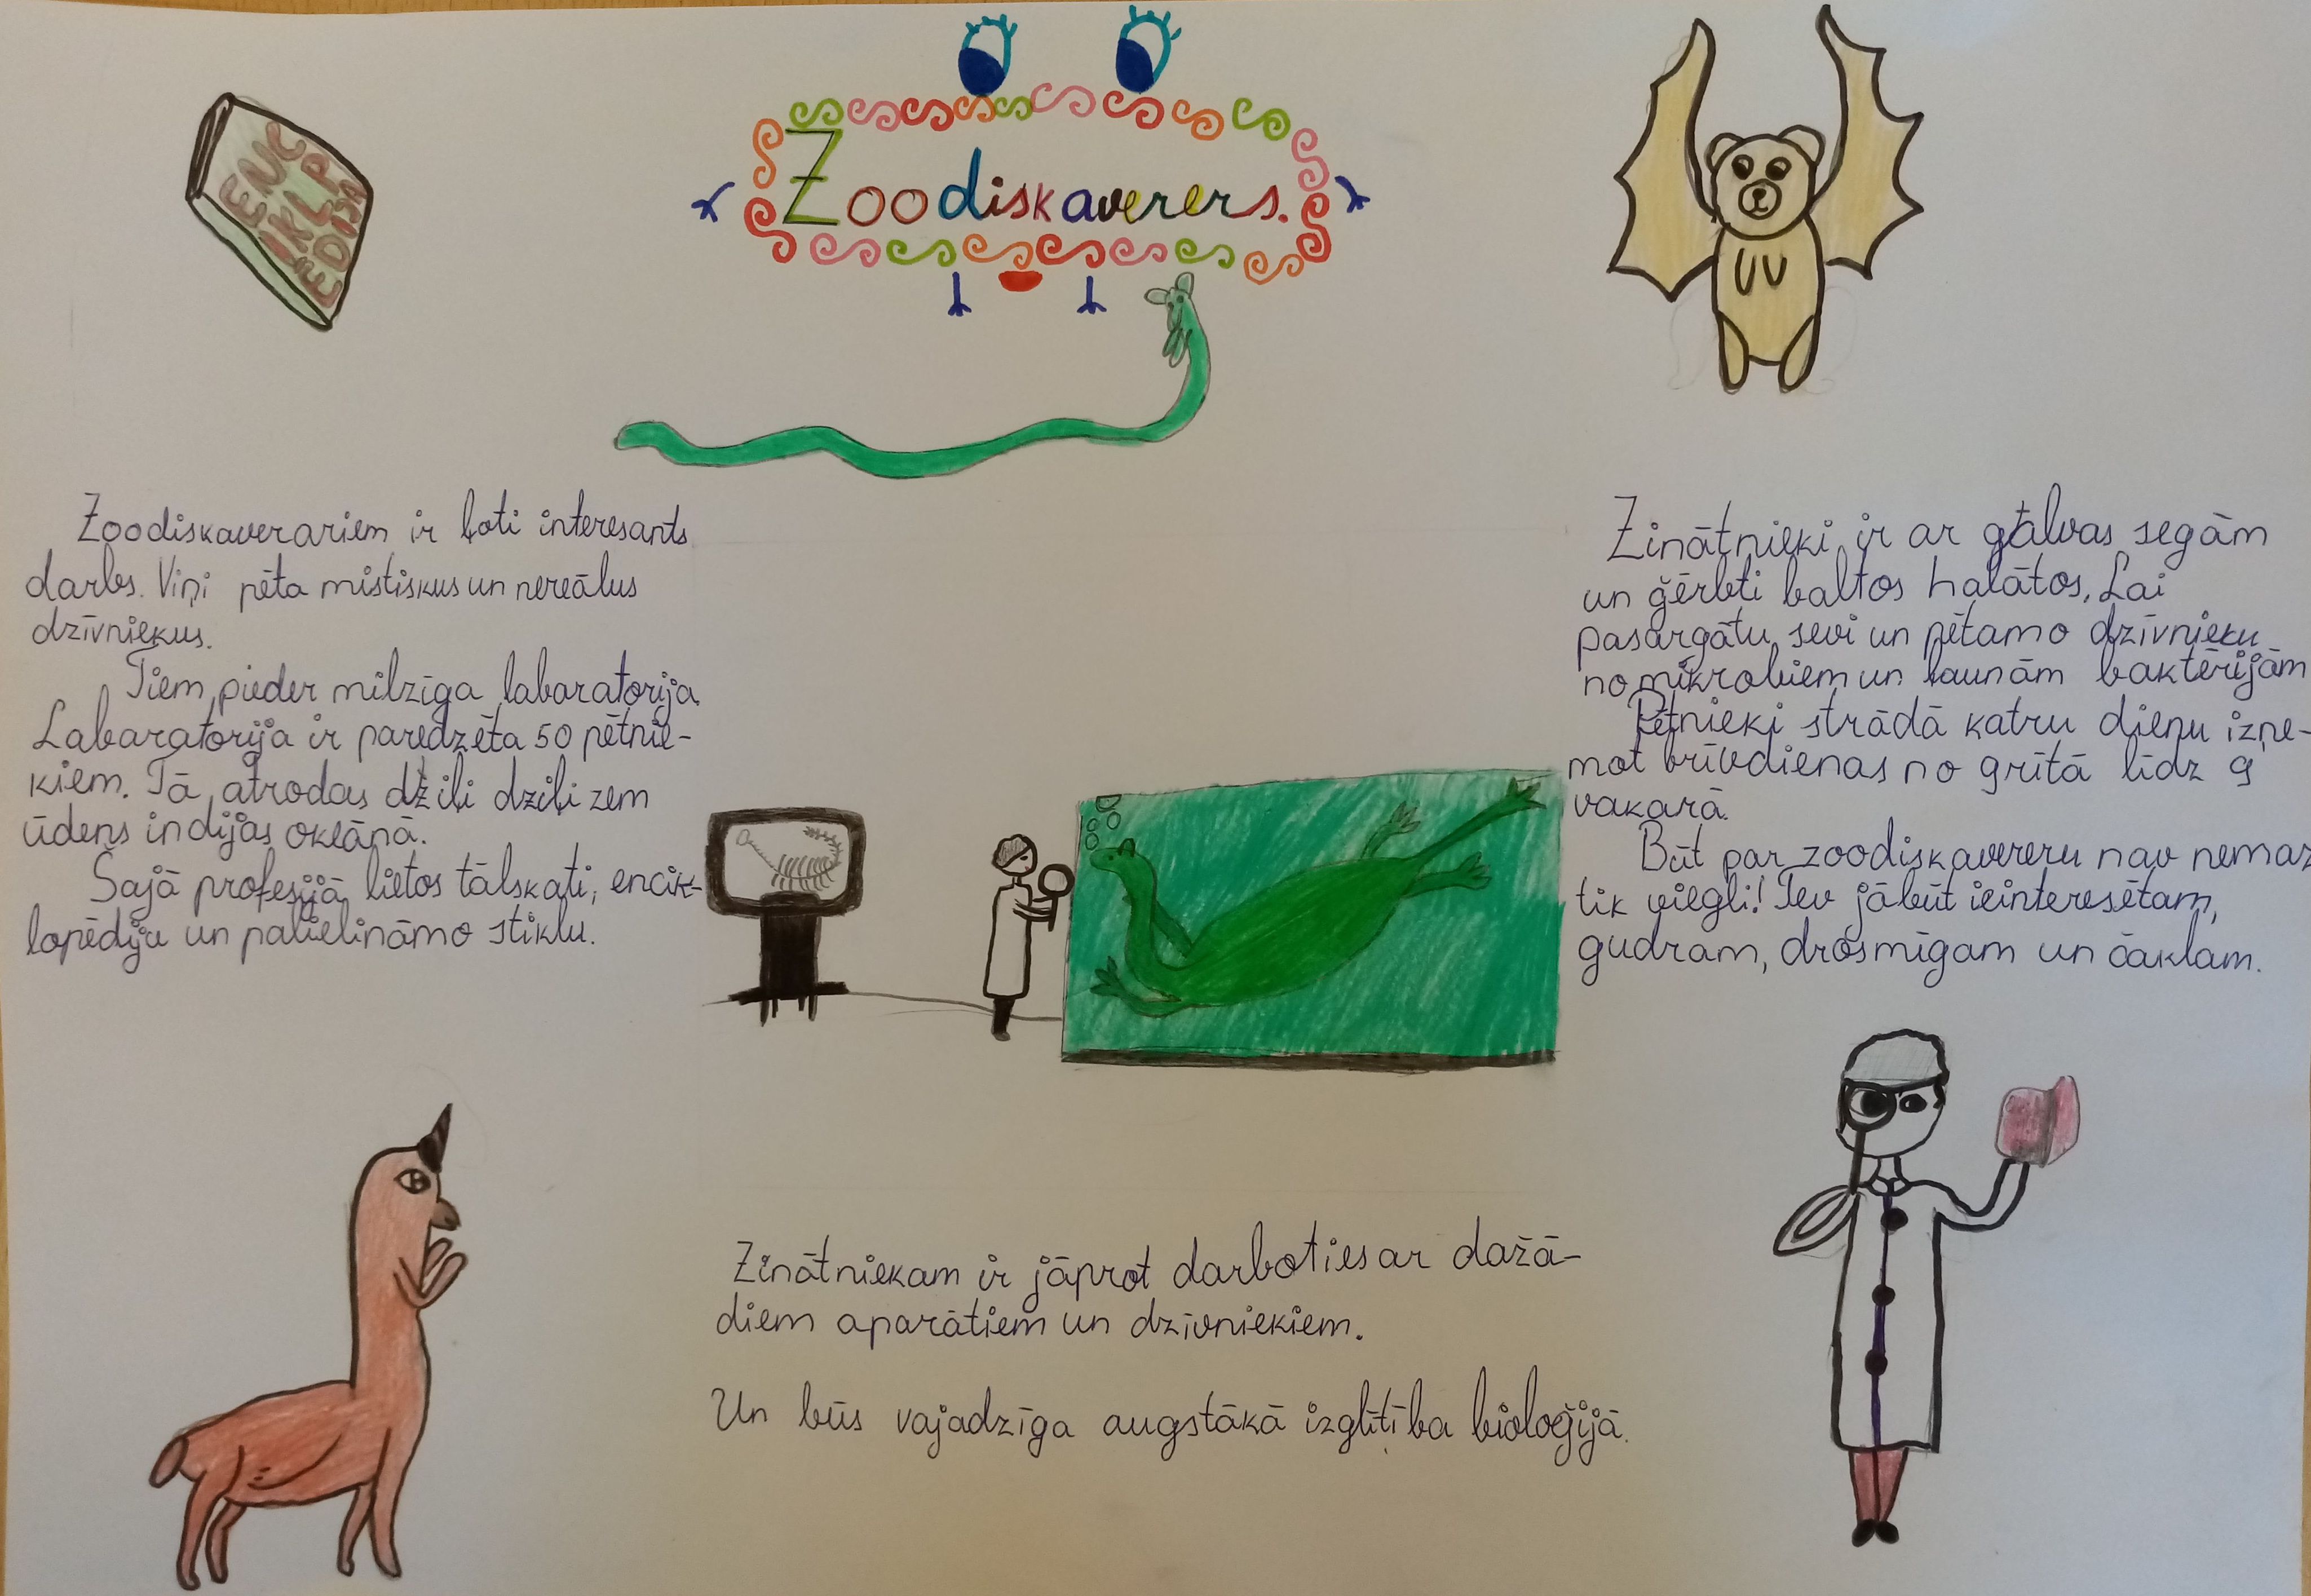 ENC
IKLP
EDIJA
Zoodiskaverers.
Zoodiskaverariem ir ļoti interesants
darbs. Viņi pēta mistiskus un nereālus
dzīvniekus.
Tiem pieder milzīga labaratorija.
Labaratorija ir paredzēta 50 pētnie-
kiem. Tā atrodas dziļi dziļi zem
ūdens indijas okeānā.
Šajā profesijā lietos tālskati, encik-
lopēdiju un palielināmo stiklu.
Zinātnieki ir ar galvas segām
un ģērbti baltos halātos, Lai
pasargātu sevi un pētamo dzīvnieku
no mikrobiem un ļaunām baktērijām
Pētnieki strādā katru dienu izņe-
mot brīvdienas no grītā līdz 9
vakarā.
Būt par zoodiskavereru nav nemaz
tik viegli! Tev jābūt ieinteresētam,
gudram, drosmīgam un čaklam.
Zinātniekam ir jāprot darboties ar dažā-
diem aparātiem un dzīvniekiem.
Un būs vajadzīga augstākā izglītība bioloģijā.